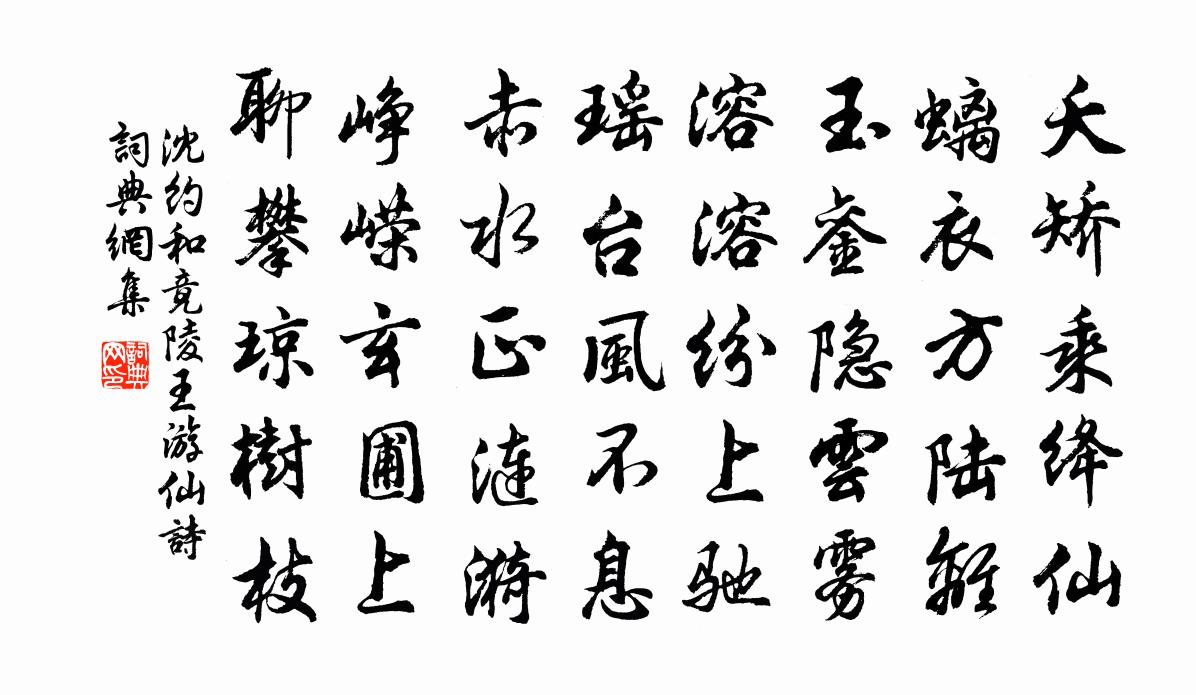 夭矫乘绛仙
螭衣方陆離
玉銮隐雲雾
溶溶纷上驰
瑶台風不息
赤水正涟漪
峥嵘玄圃上
聊攀琼樹枝
沈约和竟陵王游仙詩
詞典網集
詞典网印